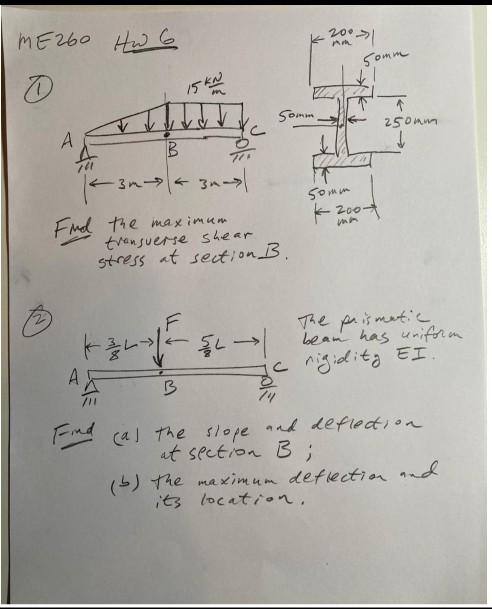 ME260 HW 6
①
200
mm
50mm
15 KN/m
50mm
250mm
A
B
C
3m
3m
50mm
200
mm
Find the maximum
transverse shear
stress at section B.
②
F
3/8 L
5/8 L
A
B
C
The prismatic
beam has uniform
rigidity EI.
Find (a) the slope and deflection
at section B ;
(b) the maximum deflection and
its location.